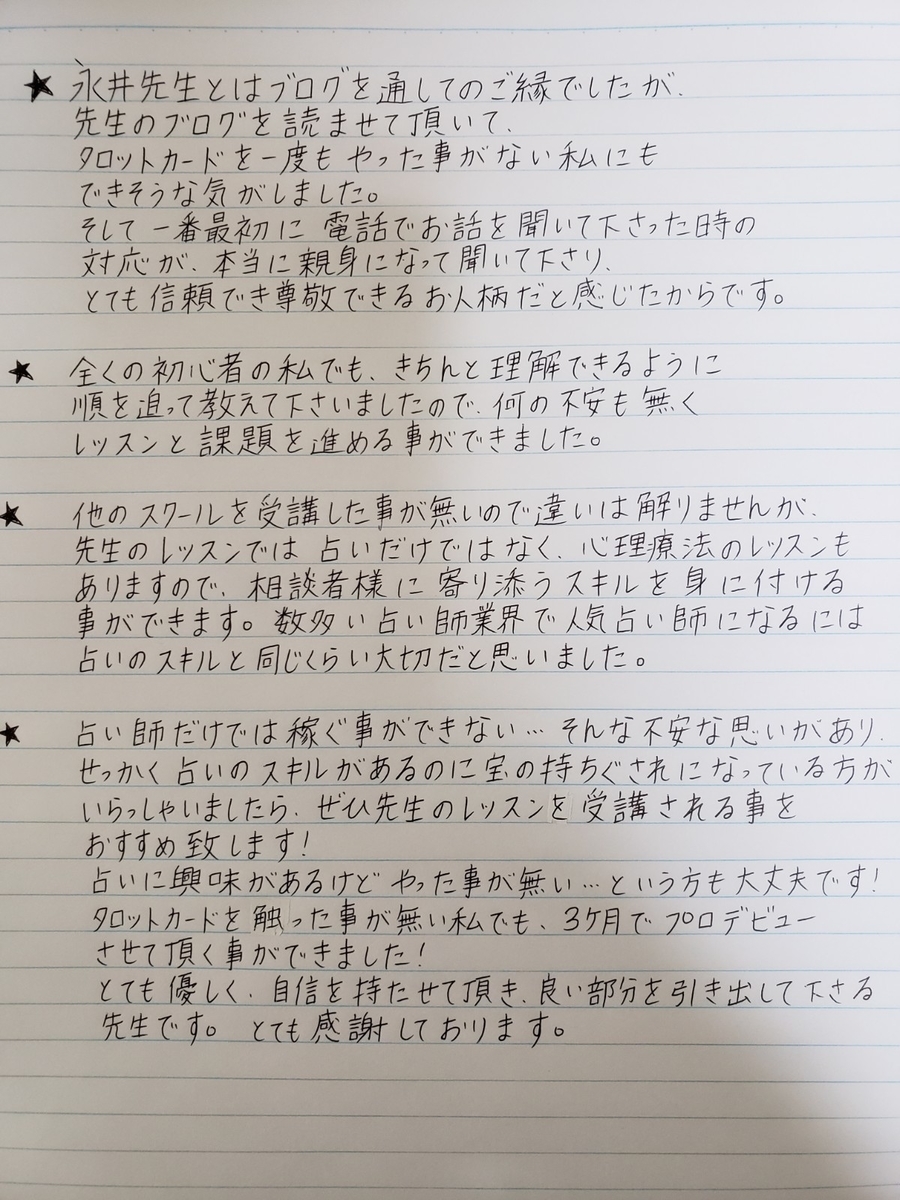 ★ 永井先生とはブログを通してのご縁でしたが、
先生のブログを読ませて頂いて、
タロットカードを一度もやった事がない私にも
できそうな気がしました。
そして一番最初に電話でお話を聞いて下さった時の
対応が、本当に親身になって聞いて下さり、
とても信頼でき尊敬できるお人柄だと感じたからです。
★ 全くの初心者の私でも、きちんと理解できるように
順を追って教えて下さいましたので、何の不安も無く
レッスンと課題を進める事ができました。
★ 他のスクールを受講した事が無いので違いは解りませんが、
先生のレッスンでは占いだけではなく、心理療法のレッスンも
ありますので、相談者様に寄り添うスキルを身に付ける
事ができます。数多い占い師業界で人気占い師になるには
占いのスキルと同じくらい大切だと思いました。
★ 占い師だけでは稼ぐ事ができない…そんな不安な思いがあり、
せっかく占いのスキルがあるのに宝の持ちぐされになっている方が
いらっしゃいましたら、ぜひ先生のレッスンを受講される事を
おすすめ致します!
占いに興味があるけどやった事が無い…という方も大丈夫です!
タロットカードを触った事が無い私でも、3ケ月でプロデビュー
させて頂く事ができました!
とても優しく、自信を持たせて頂き、良い部分を引き出して下さる
先生です。とても感謝しております。